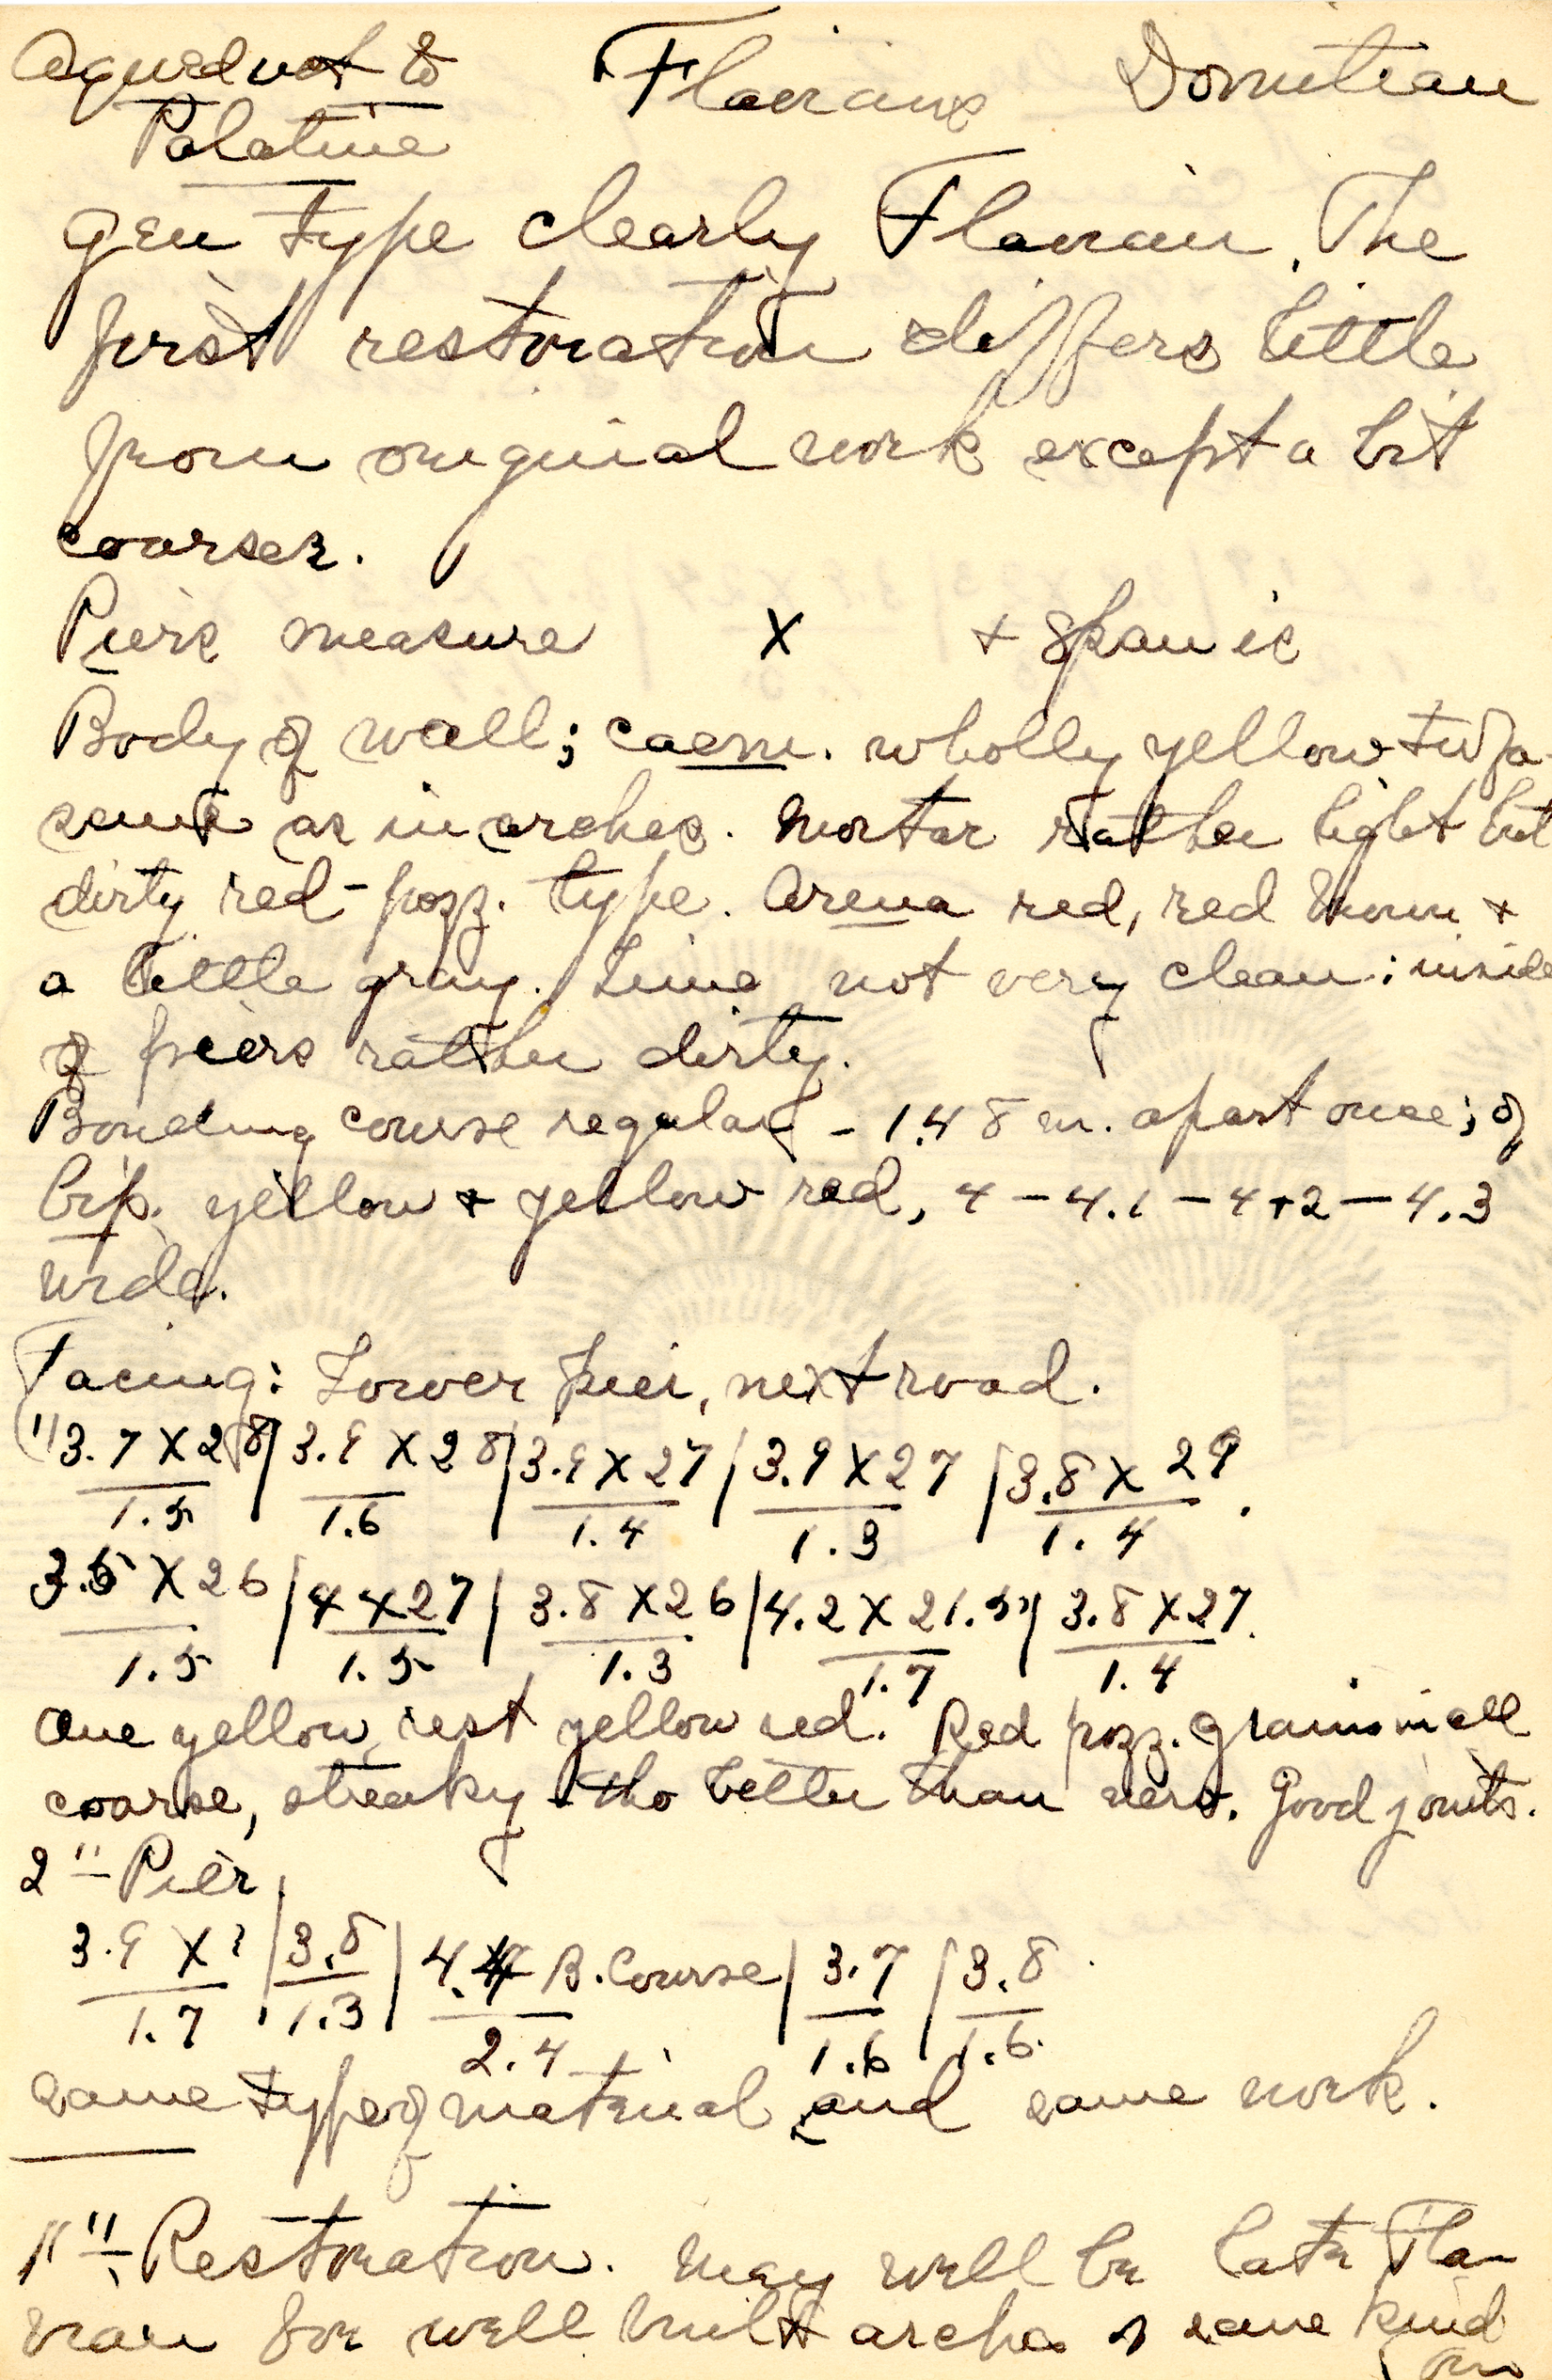 Aqueduct to Flavians Domitian
Palatine
gen type clearly Flavian. The
first restoration differs little
from original work except a bit
coarser.
Piers measure X + span is
Body of wall; caem. wholly yellow tufa
same as in arches. Mortar rather light but
dirty red-pozz. type. Arena red, red brown +
a little gray. Lime not very clean: inside
of piers rather dirty.
Bonding course regular - 1.48 m. apart once; of
bip. yellow + yellow red, 4-4.1-4+2-4.3
wide.
Facing: Lower pier, next road.
3.7 X 28/ 3.9 X 28/ 3.9 X 27 / 3.9 X 27 / 3.8 X 29.
1.5 1.6 1.4 1.3 1.4
3.5 X 26 / 4 X 27 / 3.8 X 26 / 4.2 X 21.5 / 3.8 X 27.
1.5 1.5 1.3 1.7 1.4
One yellow, rest yellow red. Red pozz. grains in all
coarse, streaky tho better than Good joints.
2" Pier
3.9 X ? / 3.8 / 4. B. Course / 3.7 / 3.8
1.7 1.3 2.4 1.6 1.6.
same type of material and same work.
1" Restoration. May well be late Fla-
vian for well built arches of same kind